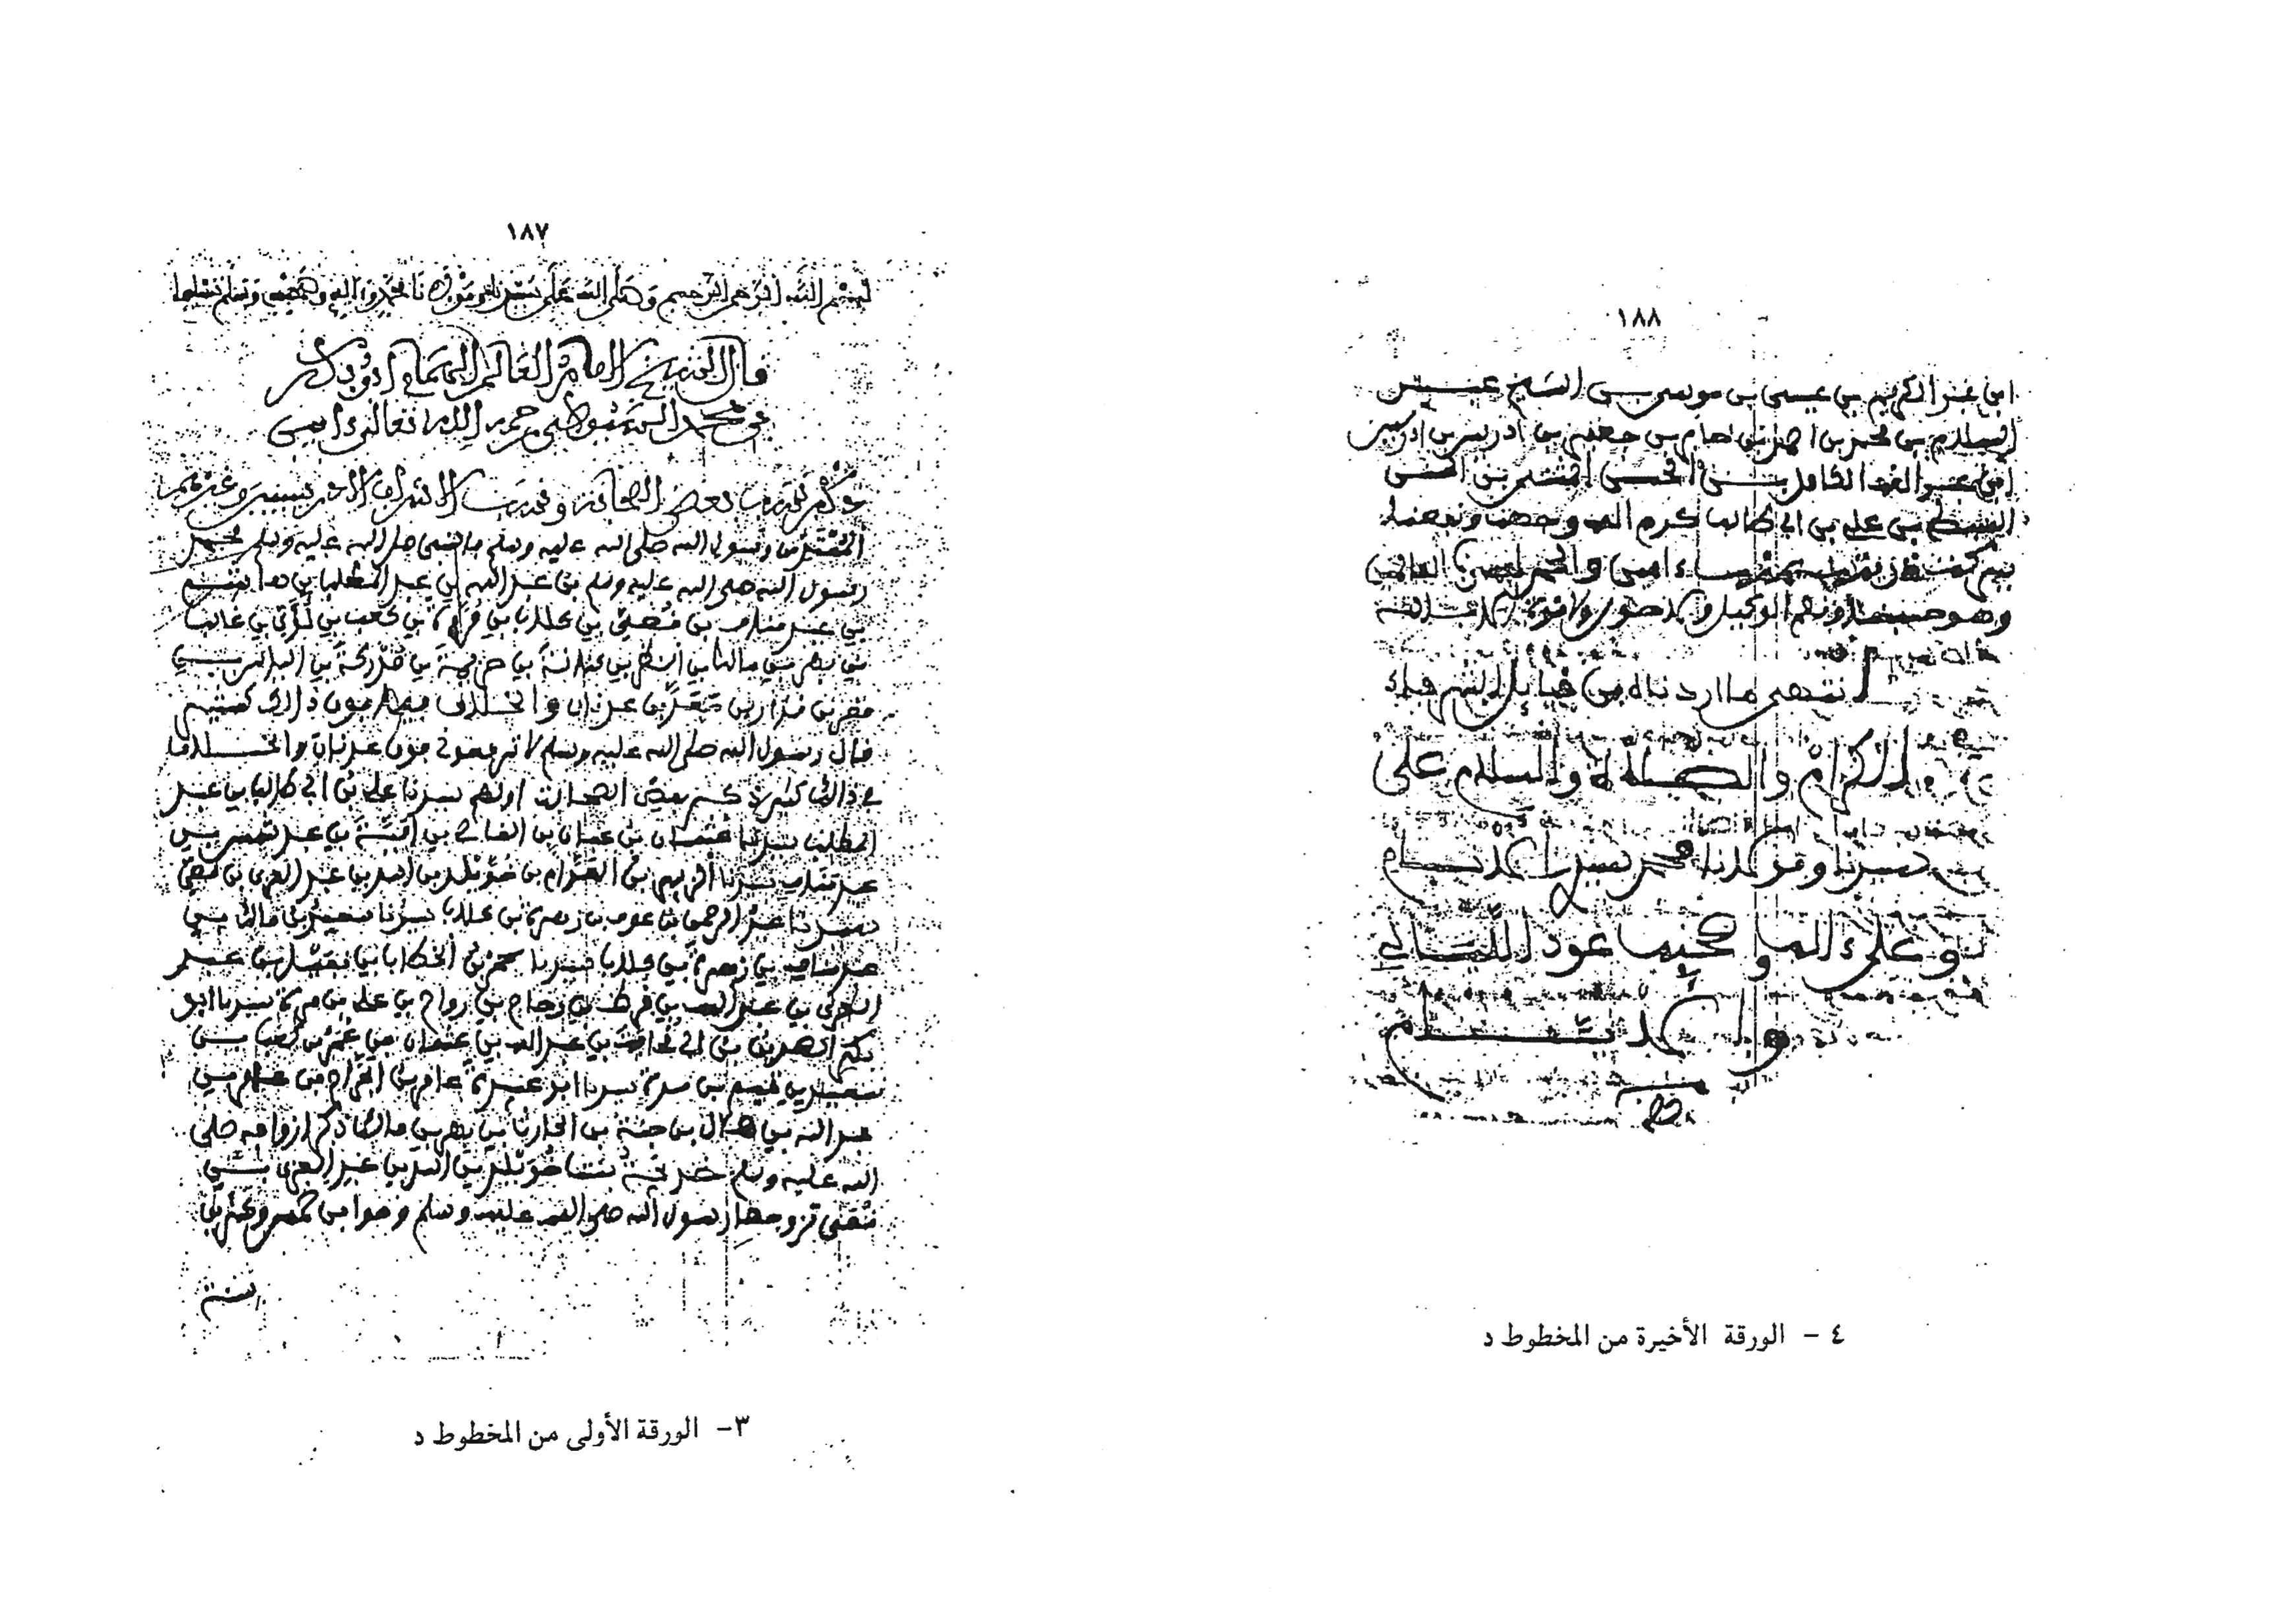 ١٨٧
بسم الله الرحمن الرحيم وصلى الله على سيدنا ومولانا محمد وءاله وصحبه وسلم تسليما
قال الشيخ الامام العالم الهمام ابو بكر
بن محمد السيوطي رحمه الله تعالى ءامين
ذكر نسب بعض الصحابة ونسب الاشراف الادريسيين وغيرهم
رسول الله صلى الله عليه وسلم بن عبد الله بن عبد المطلب بن هاشم
بن عبد مناف بن قصي بن كلاب بن مرة بن كعب بن لؤي بن غالب
بن فهر بن مالك بن النضر بن كنانة بن خزيمة بن مدركة بن الياس بن
مضر بن نزار بن معد بن عدنان والخلاف فيما فوق ذالك كثير
قال رسول الله صلى الله عليه وسلم لا ترفعوني فوق عدنان والخلاف
في ذالك كثير ذكر بعض الصحابة اولهم سيدنا علي بن ابي طالب بن عبد
المطلب سيدنا عثمان بن عفان بن العاصي بن امية بن عبد شمس بن
عبد مناف سيدنا الزبير بن العوام بن خويلد بن اسد بن عبد العزى بن قصي
سيدنا عبد الرحمن بن عوف بن زهرة بن كلاب سيدنا سعد بن مالك بن
عبد مناف بن زهرة بن كلاب سيدنا عمر بن الخطاب بن نفيل بن عبد
العزى بن عبد الله بن قرط بن زجاج بن رواح بن علي بن مرة سيدنا ابو
بكر الصديق بن ابي قحافة بن عبد الله بن عثمان بن عمر بن كعب بن
سعد بن تميم بن مرة سيدنا ابو عبيدة عامر بن الجراح بن عامر بن
عبد الله بن هلال بن بن الحارث بن فهر بن مالك ذكر ازواجه صلى
الله عليه وسلم خديجة بنت خويلد بن اسد بن عبد العزى بن
قصي تزوجها رسول الله صلى الله عليه وسلم وهو ابن خمس وعشرين
سنة
٣- الورقة الأولى من المخطوط د
١٨٨
ابن عبد الكريم بن عيسى بن موسى بن الشيخ عبد
السلام بن محمد بن احمد بن امام بن جعفر بن ادريس بن ادريس
ابن عبد الله الكامل بن الحسن المثنى بن الحسن
السبط بن علي بن ابي طالب كرم الله وجهه ونفعنا
ءامين والحمد لله رب العالمين
وهو حسبنا ونعم الوكيل ولا حول ولا قوة الا بالله
انتهى ما اردناه من قبائل الشرفاء
الاكرام والصلاة والسلام على
سيدنا ومولانا محمد سيد الانام
وعلى ءاله وصحبه عود الليالي
والايام
٤ - الورقة الأخيرة من المخطوط د